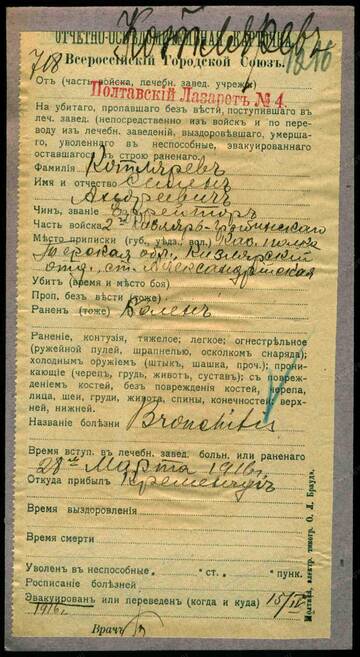 Котляревъ
ОТЧЕТНО-ОСВѢДОМИТЕЛЬНАЯ КАРТОЧКА
708
1216
Всероссійскій Городской Союзъ.
Отъ (часть войска, лечебн. завед. учрежд.)
Полтавскій Лазаретъ № 4.
На убитаго, пропавшаго безъ вѣсти, поступившаго въ
леч. завед. (непосредственно изъ войскъ и по пере-
воду изъ лечебн. заведеній, выздоровѣвшаго, умерша-
го, уволеннаго въ неспособные, эвакуированнаго
оставшагося въ строю раненаго.
Фамилія Котляревъ
Имя и отчество Семенъ
Андреевичъ
Чинъ, званіе Ефрейторъ
Часть войска 2й Кизляро-Гребенскаго
Мѣсто приписки (губ., уѣзд., вол.) Каз. полка
Терская обл., Кизлярскій
отд., ст. Александрійская
Убитъ (время и мѣсто боя)
Проп. безъ вѣсти (тоже)
Раненъ (тоже) Боленъ
Раненіе, контузія, тяжелое; легкое; огнестрѣльное
(ружейной пулей, шрапнелью, осколкомъ снаряда);
холоднымъ оружіемъ (штыкъ, шашка, проч.); прони-
кающіе (черепъ, грудь, животъ, суставъ); съ повреж-
деніемъ костей, безъ поврежденія костей, черепа,
лица, шеи, груди, живота, спины, конечностей; верх-
ней, нижней.
Названіе болѣзни Bronchitis
Время вступ. въ лечебн. завед. больн. или раненаго
28го Марта 1916г.
Откуда прибылъ Кременчугъ
Время выздоровленія
Время смерти
Уволенъ въ неспособные. ст. пунк.
Росписаніе болѣзней
Эвакуированъ или переведенъ (когда и куда) 15/IV
1916г.
Врачъ
Полтава, электр. типогр. О. Л. Брауде.